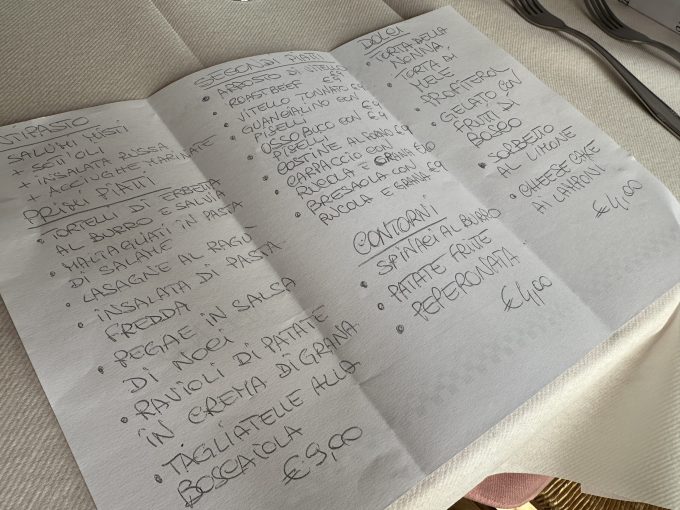 NTIPASTO
SALUMI MISTI
+ SOTT'OLI
+ INSALATA RUSSA
+ ACCIUGHE MARINATE
PRIMI PIATTI
• TORTELLI DI ERBETTA
AL BURRO E SALVIA
• MALTAGLIATI IN PASTA
DI SALAME
• LASAGNE AL RAGÙ
• INSALATA DI PASTA
FREDDA
• PEGAE IN SALSA
DI NOCI
• RAVIOLI DI PATATE
IN CREMA DI GRANA
• TAGLIATELLE ALLA
BOSCAIOLA
€ 9,00
SECONDI PIATTI
• ARROSTO DI VITELLO
• ROASTBEEF €9
• VITELLO TONNATO €9
• GUANCIALINO CON
PISELLI €9
• OSSOBUCO CON €9
PISELLI
• COSTINE AL FORNO €9
• CARPACCIO CON
RUCOLA E GRANA €10
• BRESAOLA CON
RUCOLA E GRANA €9
CONTORNI
• SPINACI AL BURRO
• PATATE FRITTE
• PEPERONATA
€ 4,00
DOLCI
• TORTA DELLA
NONNA
• TORTA DI
MELE
• PROFITEROL
• GELATO CON
FRUTTI DI
BOSCO
• SORBETTO
AL LIMONE
• CHEESE CAKE
AI LAMPONI
€ 4,00